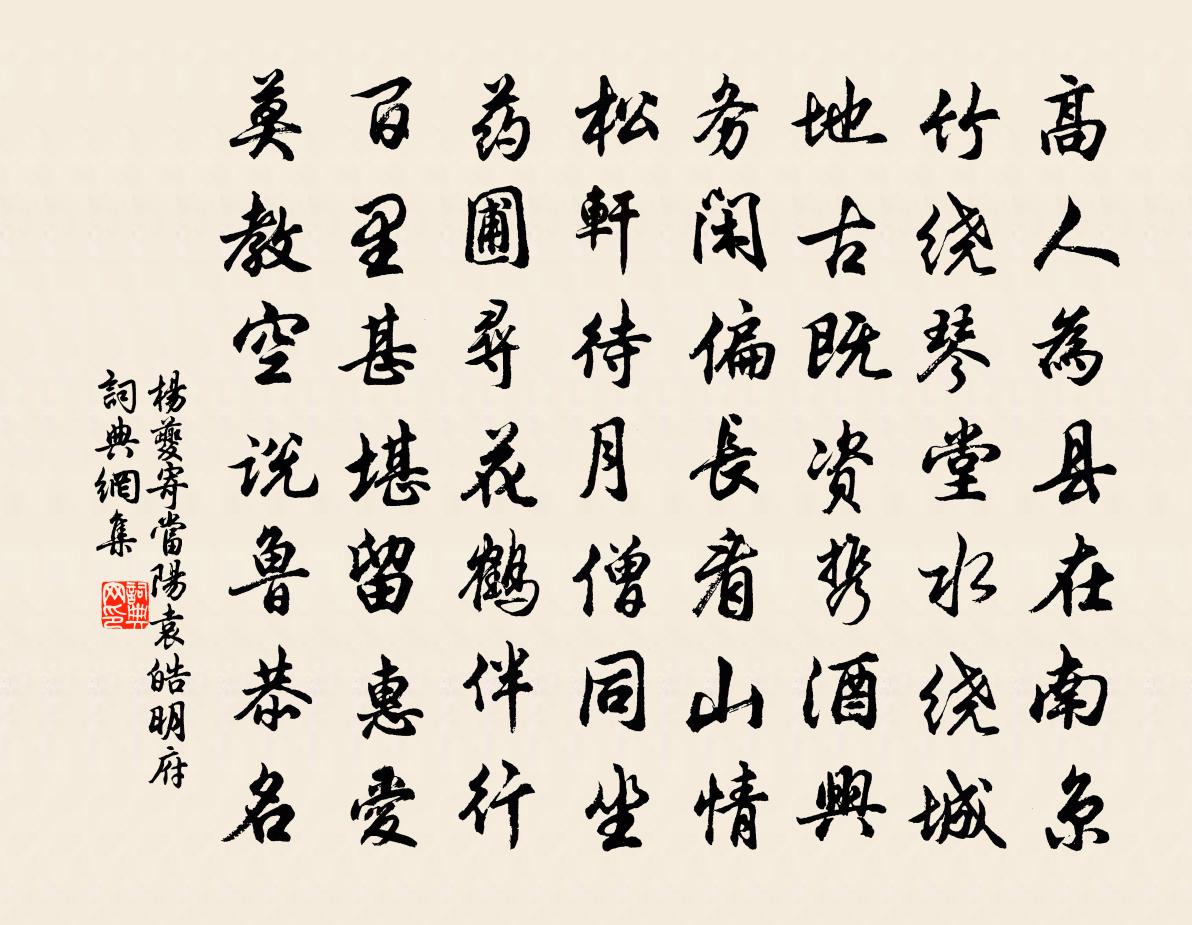 高人為县在南京
竹绕琴堂水绕城
地古既资携酒興
务闲偏長看山情
松軒待月僧同坐
药圃尋花鶴伴行
百里甚堪留惠愛
莫教空说鲁恭名
楊夔寄當陽袁皓明府
詞典網集
詞典网印